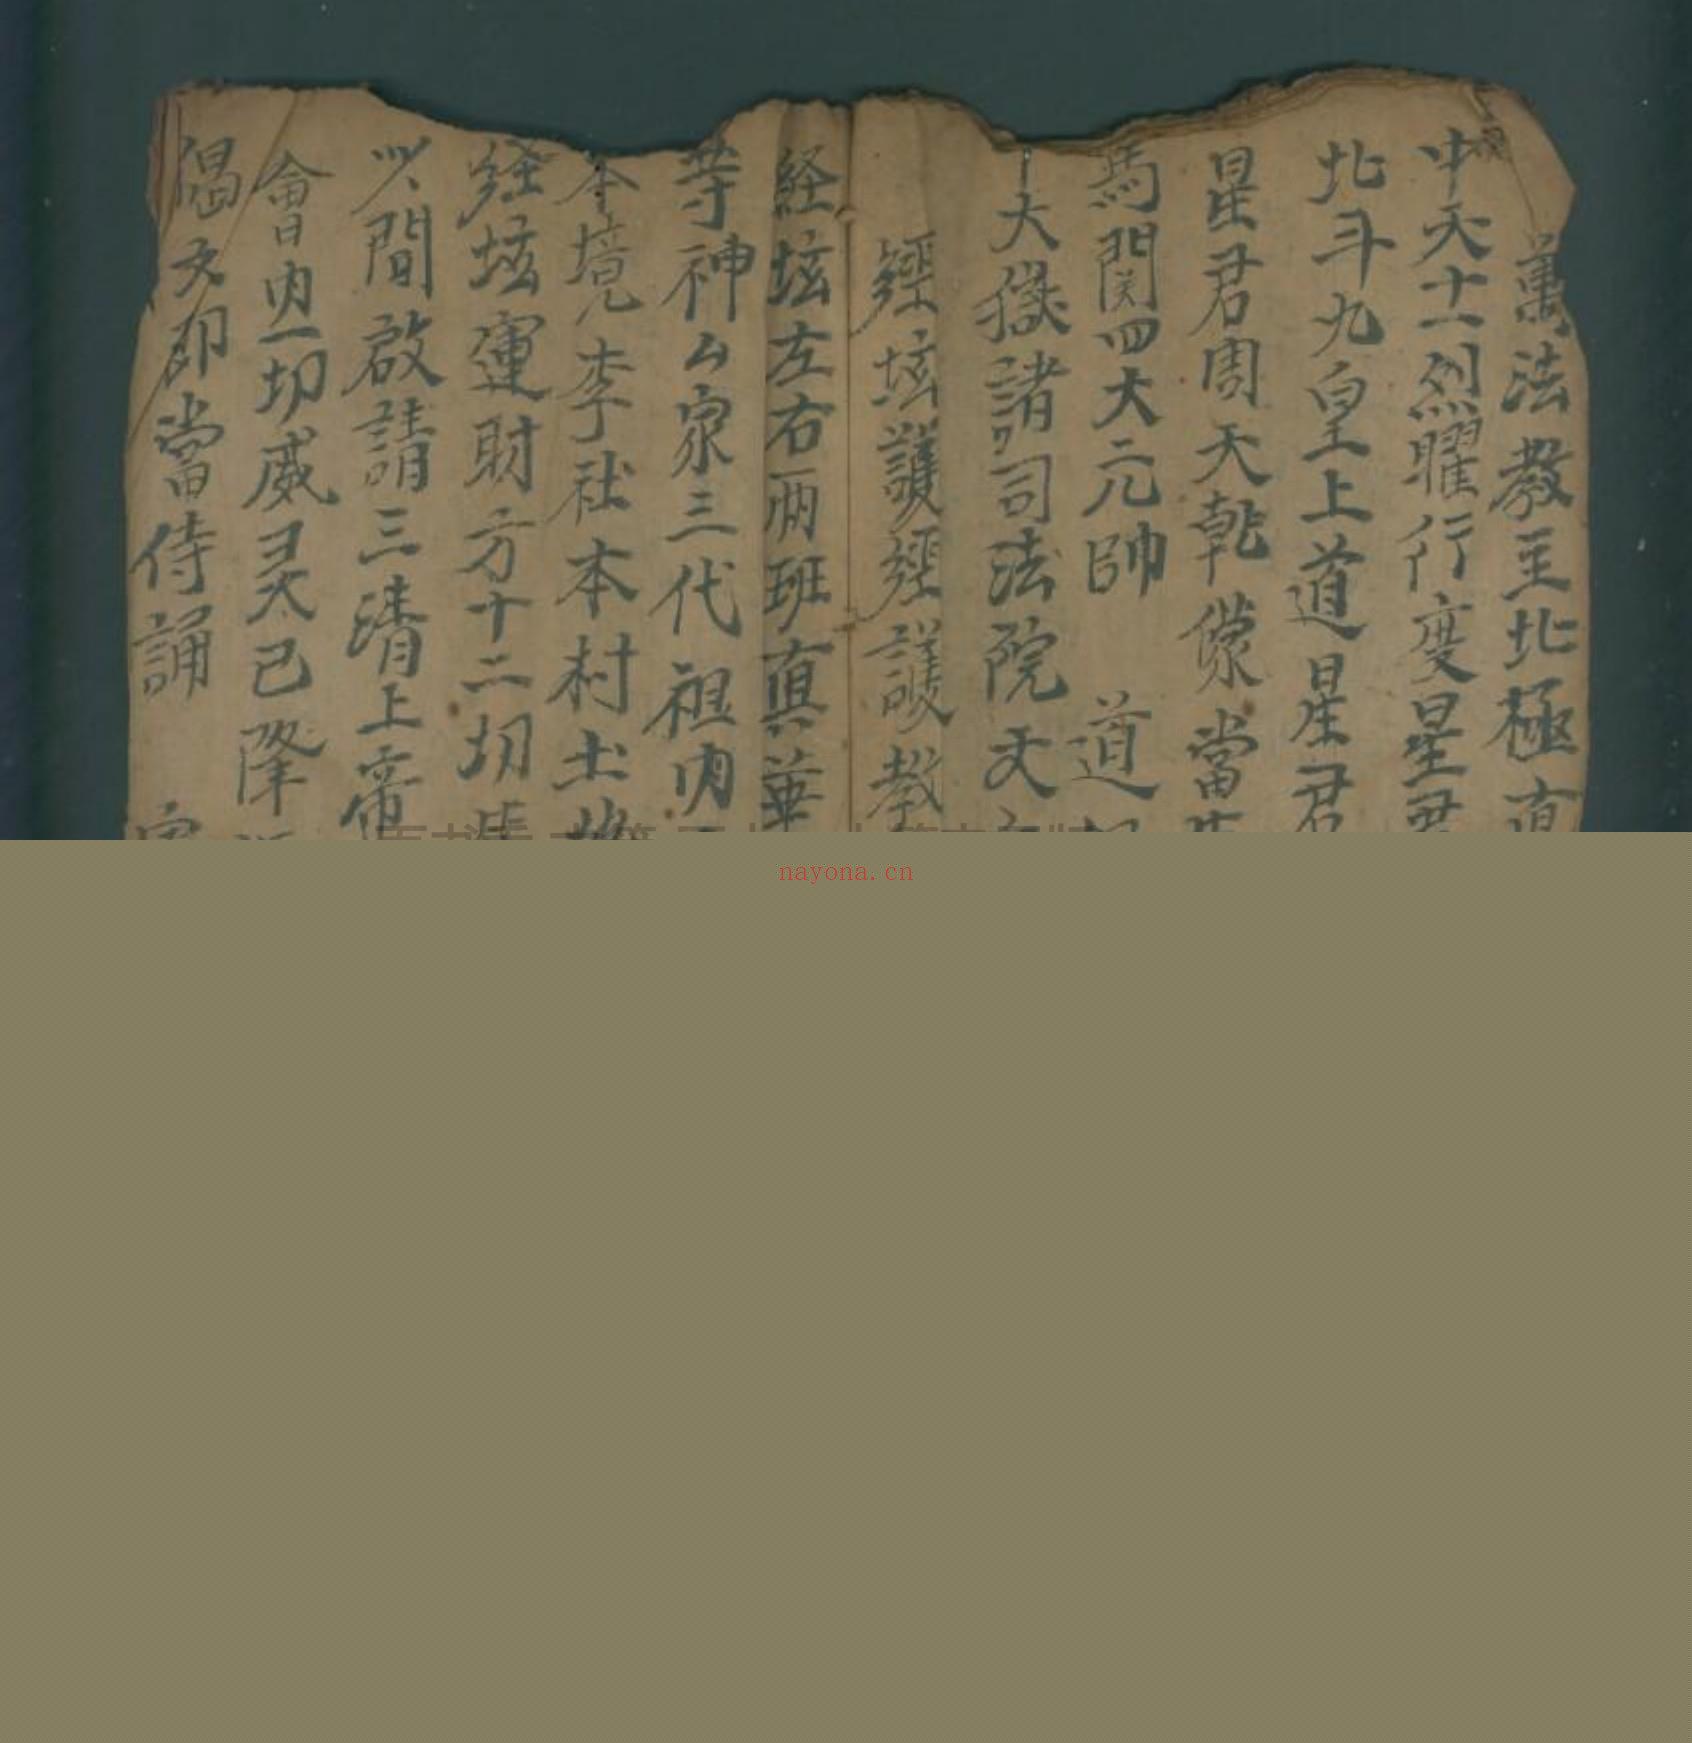 萬法教主北極真
中天十一列曜行度星君
北斗九皇上道星君
星君周天乾像當生
馬関四大元帥 道
十大獄諸司法院文
經坛護經護教
経坛左右兩班真華
等神公家三代祖内
本境李社本村土地
経坛運財方十二切
以間啟請三清上帝
會内一切威灵已降
偈文即當侍誦
nayona.cn